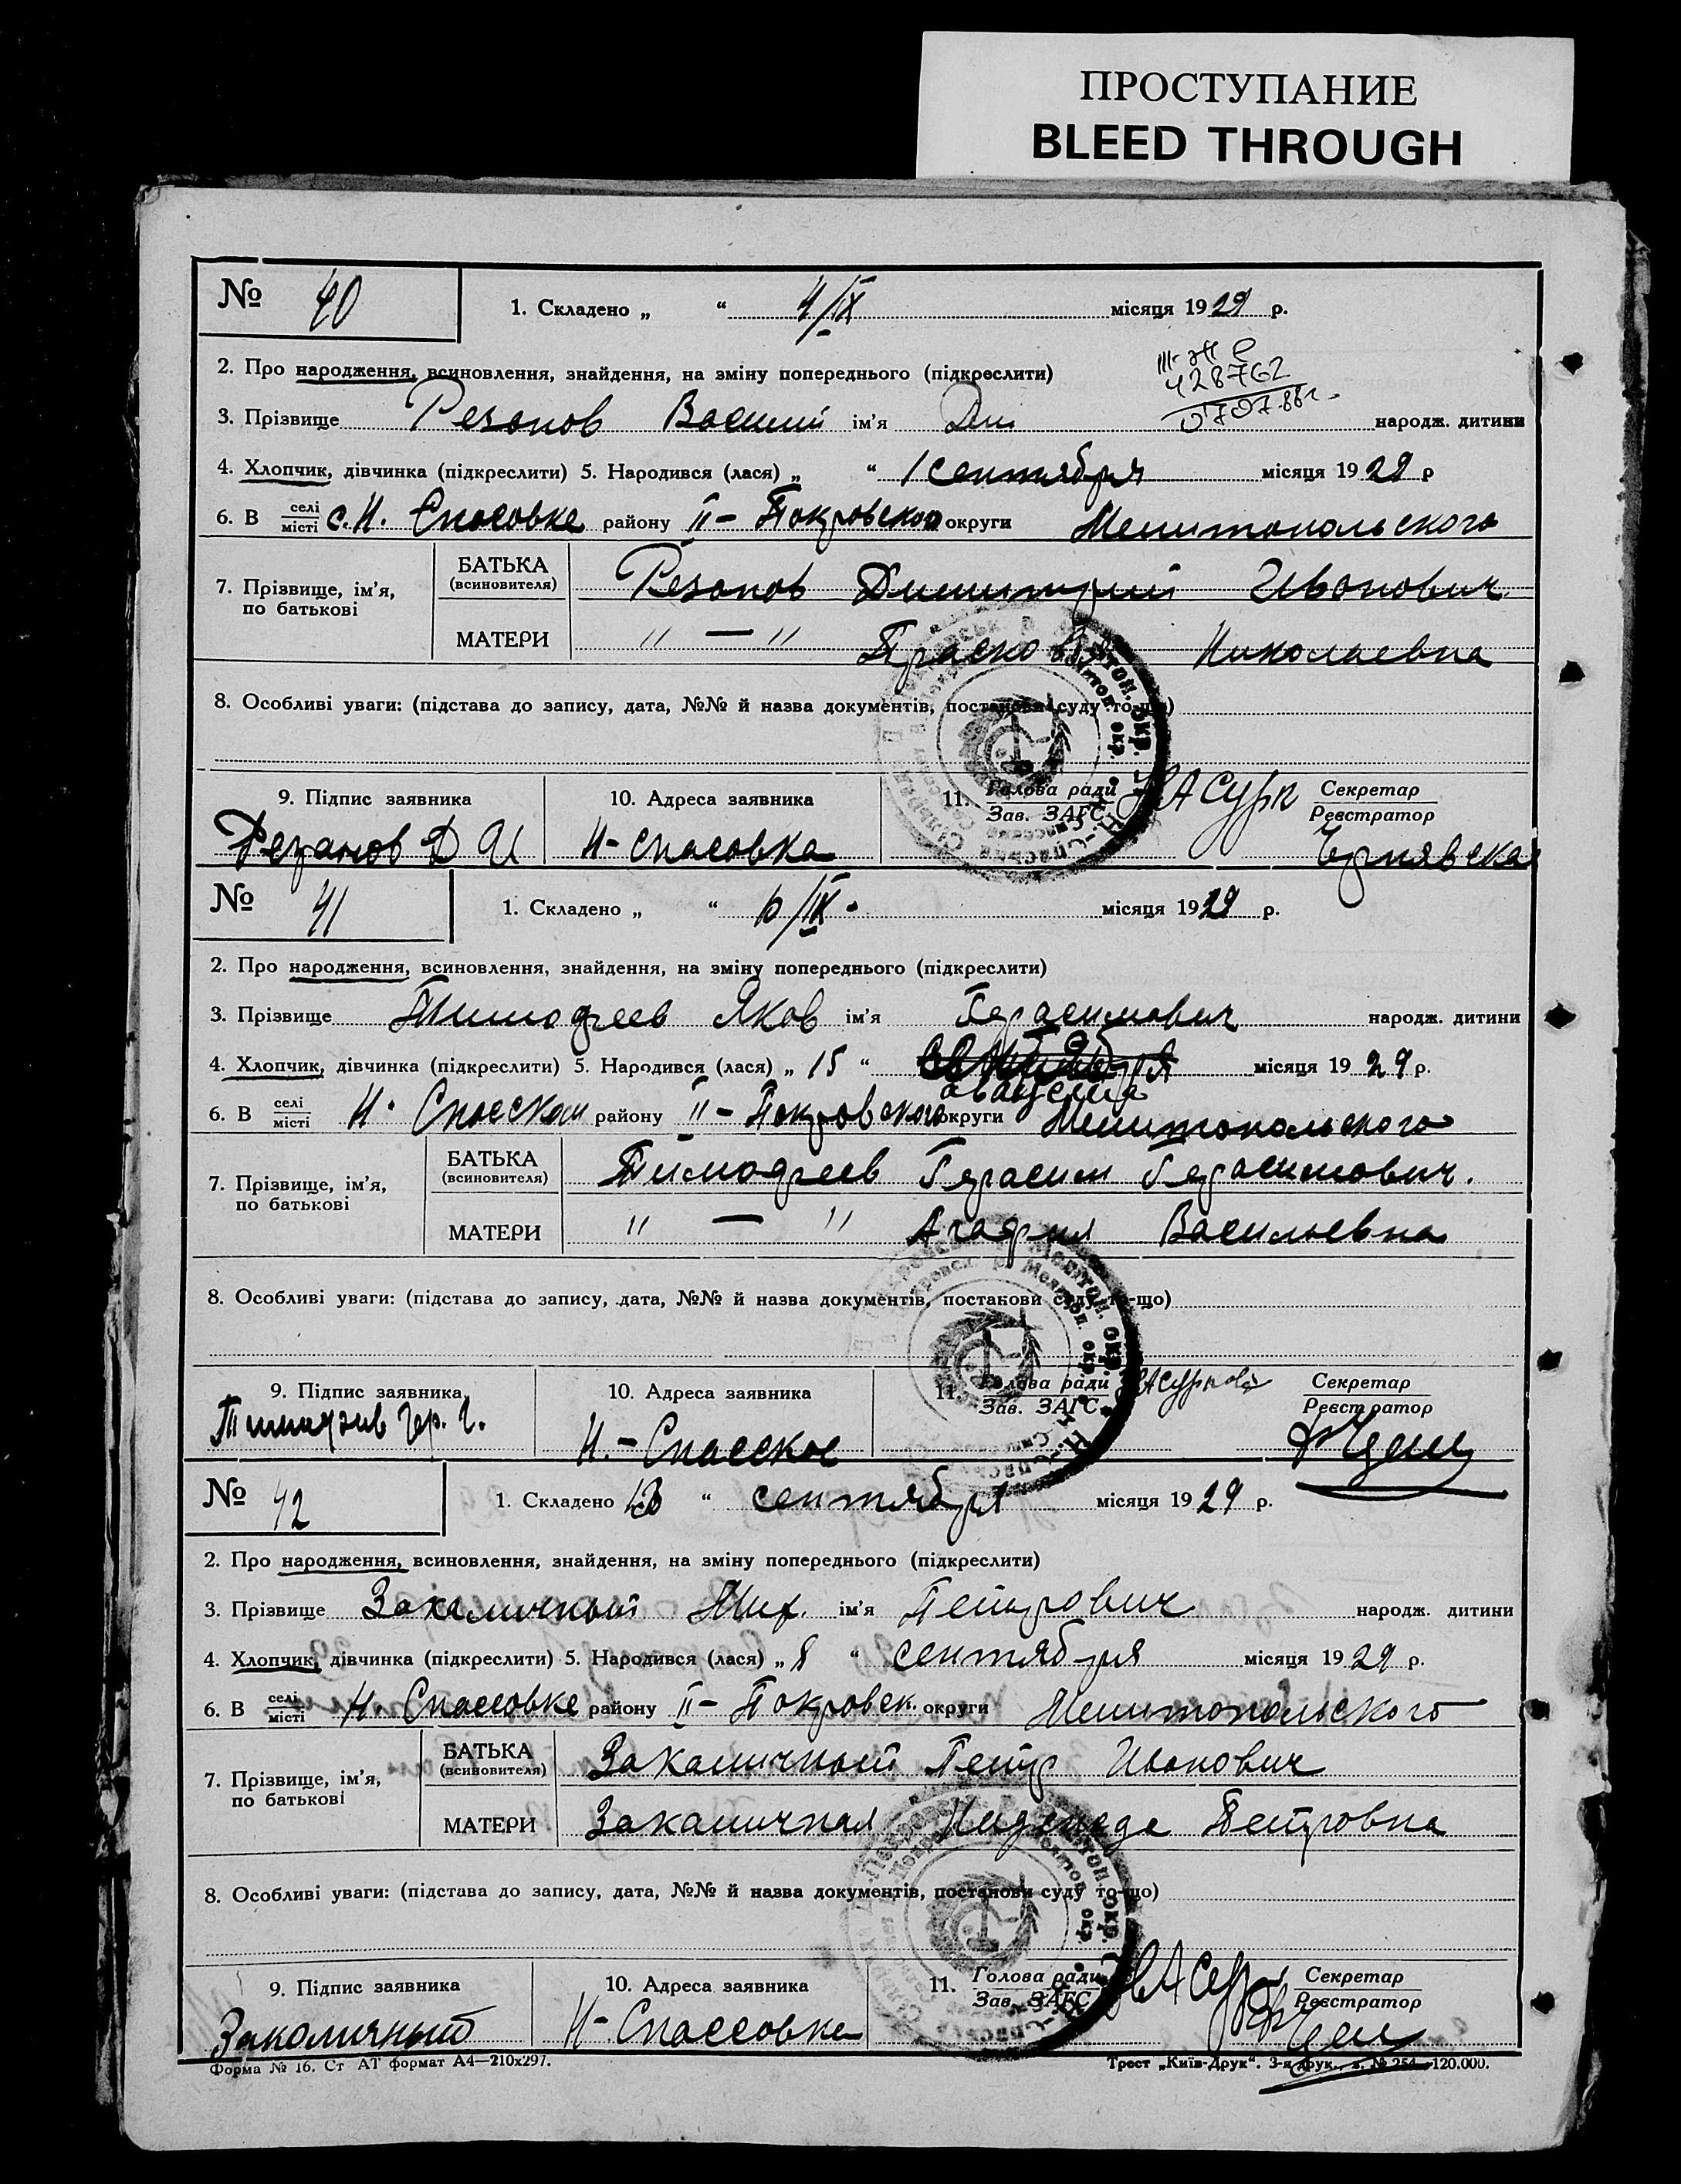 ПРОСТУПАНИЕ
BLEED THROUGH
№ 40 1. Складено „ “ 4/IX місяця 1929 р.
2. Про народження, всиновлення, знайдення, на зміну попереднього (підкреслити)
428762
3. Прізвище Резанов Василий ім'я Дм народж. дитини
4. Хлопчик, дівчинка (підкреслити) 5. Народився (лася) „ “ 1 сентября місяця 1929 р
6. В селі місті с. Н. Спасовке району II – Покровского округи Мелитопольского
7. Прізвище, ім'я, по батькові
БАТЬКА (всиновителя) Резанов Димитрий Иванович
МАТЕРИ " — " Прасковья Николаевна
8. Особливі уваги: (підстава до запису, дата, №№ й назва документів, постанови суду то-що)
9. Підпис заявника 10. Адреса заявника 11. Голова ради Зав. ЗАГС Секретар Реєстратор
Резанов Д И Н-Спасовка Чернявская
№ 41 1. Складено „ “ 6/IX. місяця 1929 р.
2. Про народження, всиновлення, знайдення, на зміну попереднього (підкреслити)
3. Прізвище Тимофеев Яков ім'я Герасимович народж. дитини
4. Хлопчик, дівчинка (підкреслити) 5. Народився (лася) „ 15 “ місяця 1929 р.
августа
6. В селі місті Н. Спасском району II – Покровского округи Мелитопольского
7. Прізвище, ім'я, по батькові
БАТЬКА (всиновителя) Тимофеев Герасим Герасимович.
МАТЕРИ " — " Агафия Васильевна
8. Особливі уваги: (підстава до запису, дата, №№ й назва документів, постанови суду то-що)
9. Підпис заявника 10. Адреса заявника 11. Голова ради Зав. ЗАГС Секретар Реєстратор
Гер. Г. Н.-Спасское
№ 42 1. Складено “ сентября місяця 1929 р.
2. Про народження, всиновлення, знайдення, на зміну попереднього (підкреслити)
3. Прізвище Закаличный Мих. ім'я Петрович народж. дитини
4. Хлопчик, дівчинка (підкреслити) 5. Народився (лася) „ 8 “ сентября місяця 1929 р.
6. В селі місті Н. Спассовке району II – Покровск. округи Мелитопольского
7. Прізвище, ім'я, по батькові
БАТЬКА (всиновителя) Закаличный Петр Иванович
МАТЕРИ Закаличная Надежда Петровна
8. Особливі уваги: (підстава до запису, дата, №№ й назва документів, постанови суду то-що)
9. Підпис заявника 10. Адреса заявника 11. Голова ради Зав. ЗАГС Секретар Реєстратор
Закаличный Н-Спассовка
Форма № 16. Ст АТ формат А4—210х297. Трест „Київ-Друк“. 3-я друк., з. № 254—120.000.